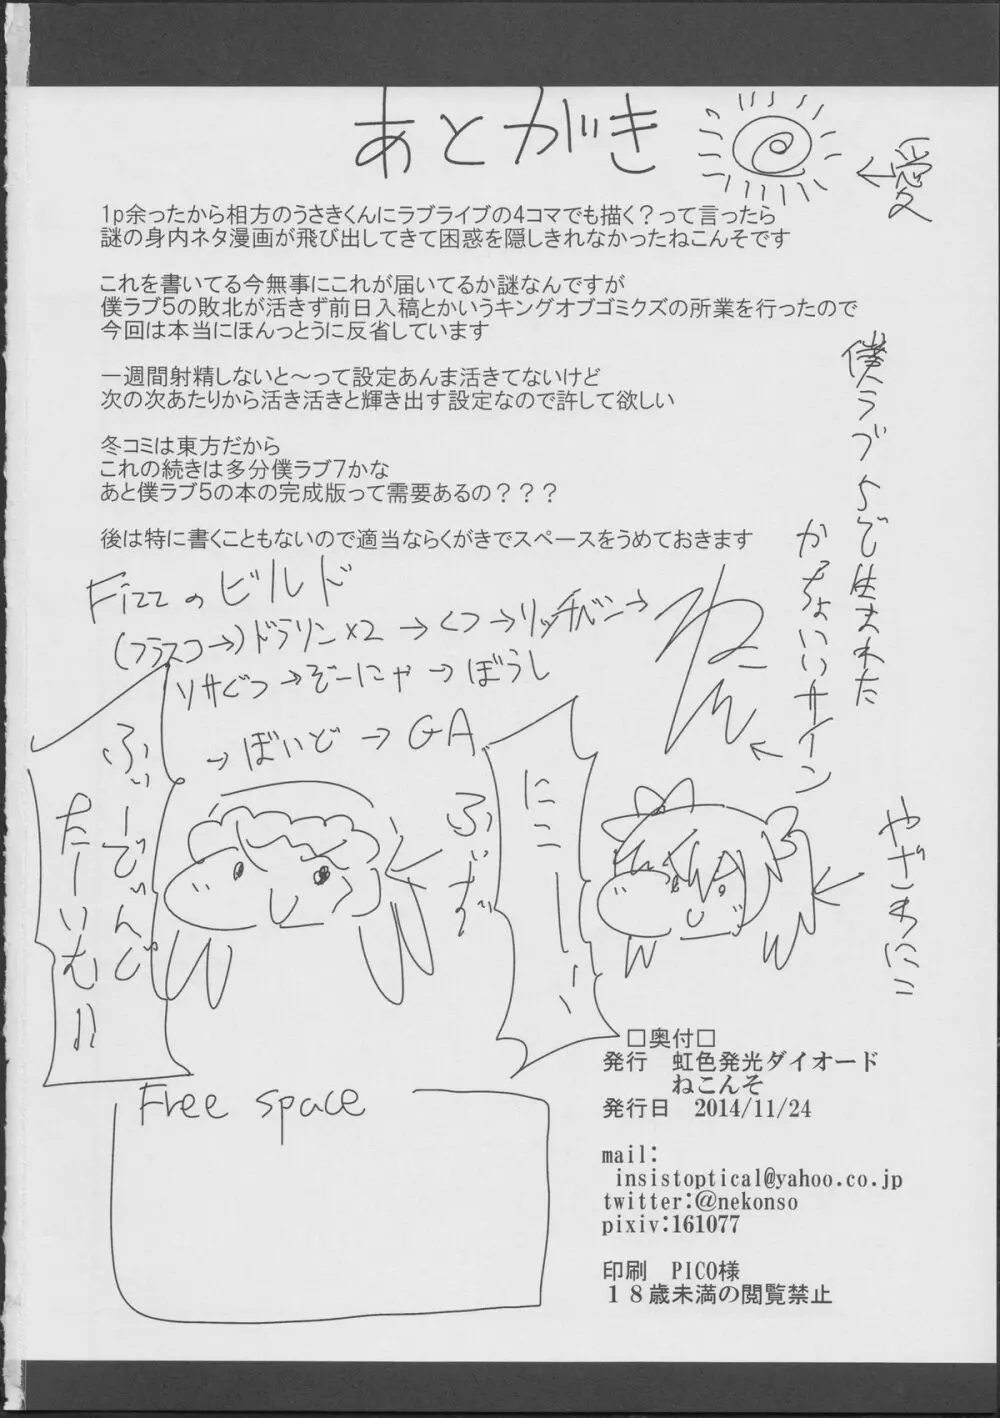 あとがき
←愛
1p余ったから相方のうさきくんにラブライブの4コマでも描く？って言ったら
謎の身内ネタ漫画が飛び出してきて困惑を隠しきれなかったねこんそです
これを書いてる今無事にこれが届いてるか謎なんですが
僕ラブ5の敗北が活きず前日入稿とかいうキングオブゴミクズの所業を行ったので
今回は本当にほんっとうに反省しています
一週間射精しないと～って設定あんま活きてないけど
次の次あたりから活き活きと輝き出す設定なので許して欲しい
冬コミは東方だから
これの続きは多分僕ラブ7かな
あと僕ラブ5の本の完成版って需要あるの？？？
後は特に書くこともないので適当ならくがきでスペースをうめておきます
僕ラブ5で生まれた
かっちょいいサイン
Fizzのビルド
(フラスコ→)ドラリン×2→くつ→リッチベン→
ソサぐつ→ぞーにゃ→ぼうし
→ぼいど→GA
ねん
ふぃーでぃんぐ
たーいむ!!
ふぃず
にこーーー
やざわにこ
Free space
□奥付□
発行　虹色発光ダイオード
ねこんそ
発行日　2014/11/24
mail:
insistoptical@yahoo.co.jp
twitter:@nekonso
pixiv:161077
印刷　PICO様
１８歳未満の閲覧禁止